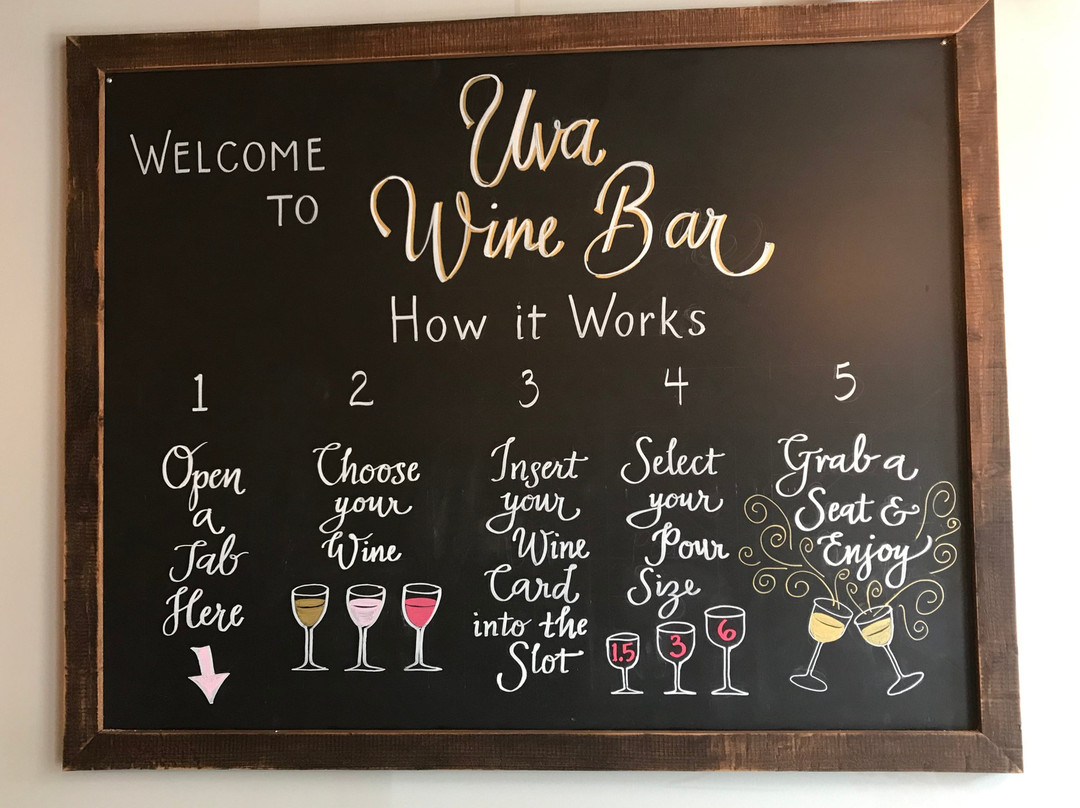 WELCOME
TO
Uva
Wine Bar
How it Works
1
Open
a
Tab
Here
2
Choose
your
Wine
3
Insert
your
Wine
Card
into the
Slot
4
Select
your
Pour
Size
1.5 3 6
5
Grab a
Seat &
Enjoy